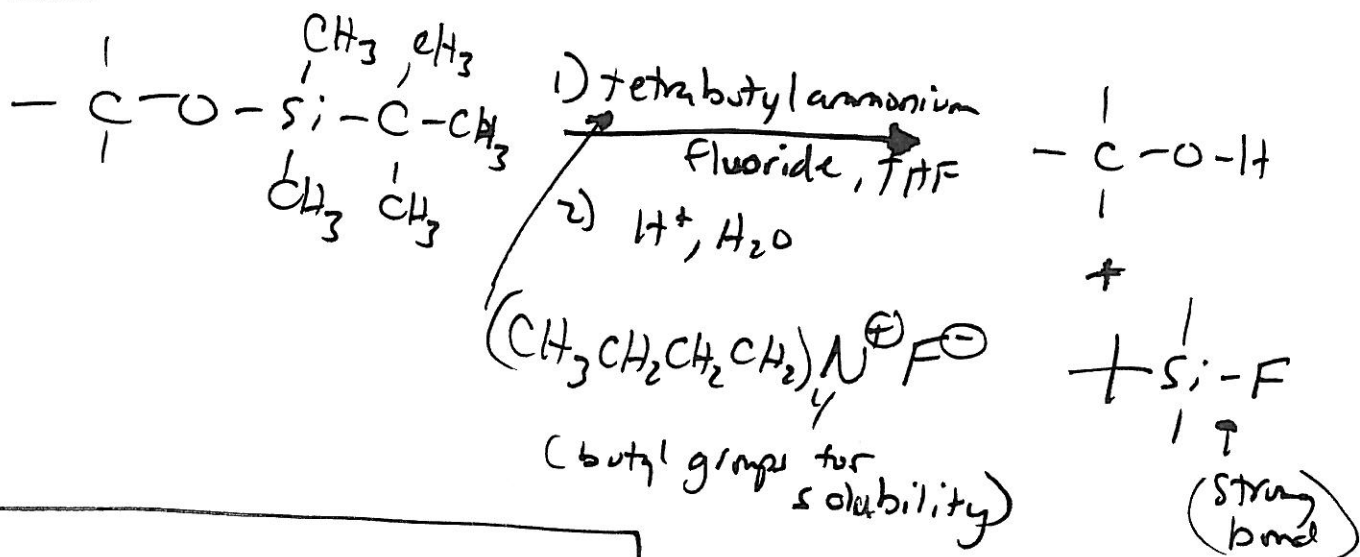 CH3 CH3
- C - O - Si - C - CH3
CH3 CH3
1) tetrabutylammonium
fluoride, THF
2) H+, H2O
(CH3CH2CH2CH2)4N⊕F⊖
(butyl groups for
solubility)
- C - O - H
+
Si - F
(strong
bond)